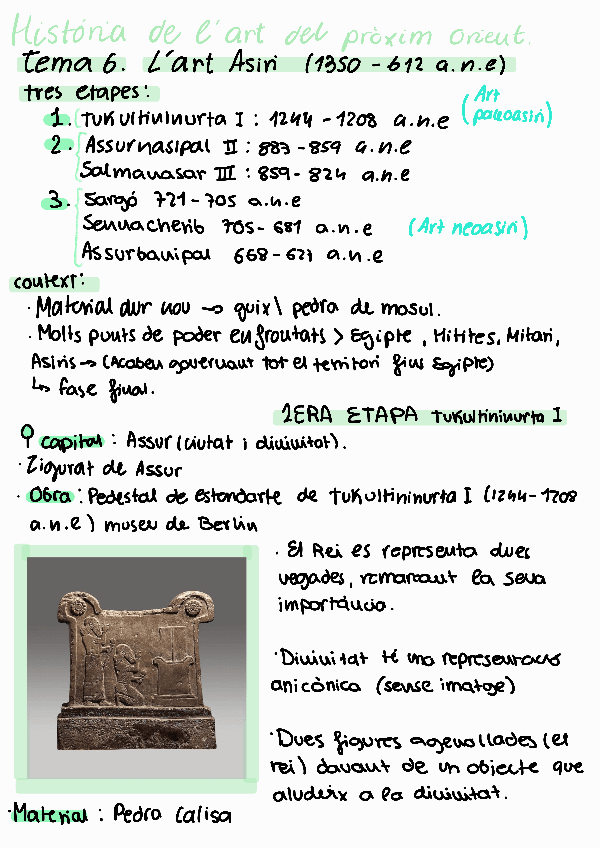 Història de l'art del pròxim orient.
Tema 6. L'art Asiri (1350 - 612 a.n.e)
tres etapes:
1. Tukultininurta I : 1244 - 1208 a.n.e (Art paleoasiri)
2. Assurnasipal II : 883 - 859 a.n.e
Salmanasar III : 859 - 824 a.n.e
3. Sargó 721 - 705 a.n.e
Sennacherib 705 - 681 a.n.e (Art neoasiri)
Assurbanipal 668 - 627 a.n.e
context:
· Material dur nou → guix \ pedra de mosul.
· Molts punts de poder enfrontats > Egipte, Hitites, Mitani,
Asiris → (Acaben governant tot el territori fins Egipte)
↳ fase final.
1ERA ETAPA Tukultininurta I
capital : Assur (ciutat i divinitat).
· Zigurat de Assur
· Obra : Pedestal de estandarte de Tukultininurta I (1244 - 1208
a.n.e) museu de Berlín
· El Rei es representa dues
vegades, remarcant la seva
importància.
· Divinitat té una representació
anicònica (sense imatge)
· Dues figures agenollades (el
rei) davant de un objecte que
aludeix a la divinitat.
· Material : Pedra Calisa